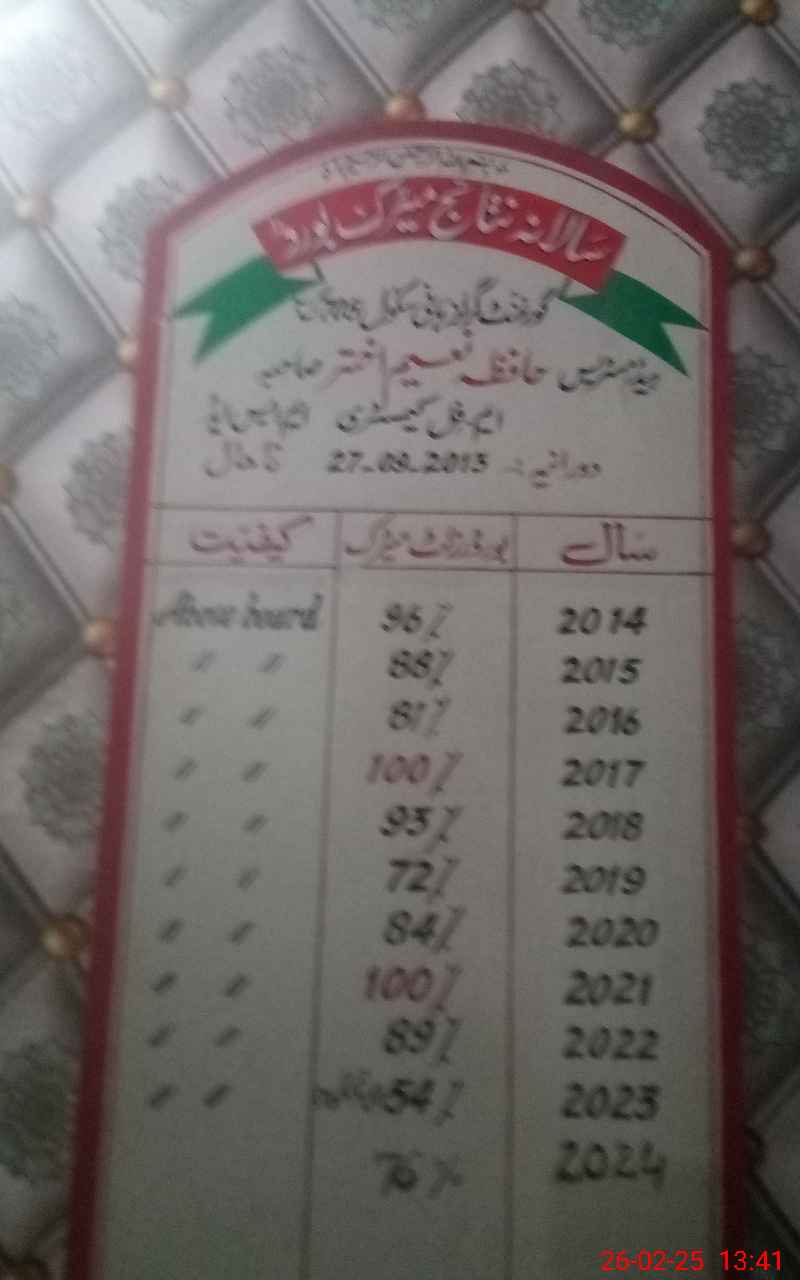 سالانہ نتائج میٹرک بورڈ
گورنمنٹ گرلز ہائی سکول
ہیڈمسٹریس حافظہ نعیم اختر صاحبہ
ایم فل کیمسٹری ایم ایس ایڈ
دورانیہ :۔ 27-09-2013 تا حال
سال بورڈ رزلٹ میٹرک کیفیت
2014 96% Above board
2015 88% 〃 〃
2016 81% 〃 〃
2017 100% 〃 〃
2018 93% 〃 〃
2019 72% 〃 〃
2020 84% 〃 〃
2021 100% 〃 〃
2022 89% 〃 〃
2023 54% 〃 〃
2024 76%
26-02-25 13:41